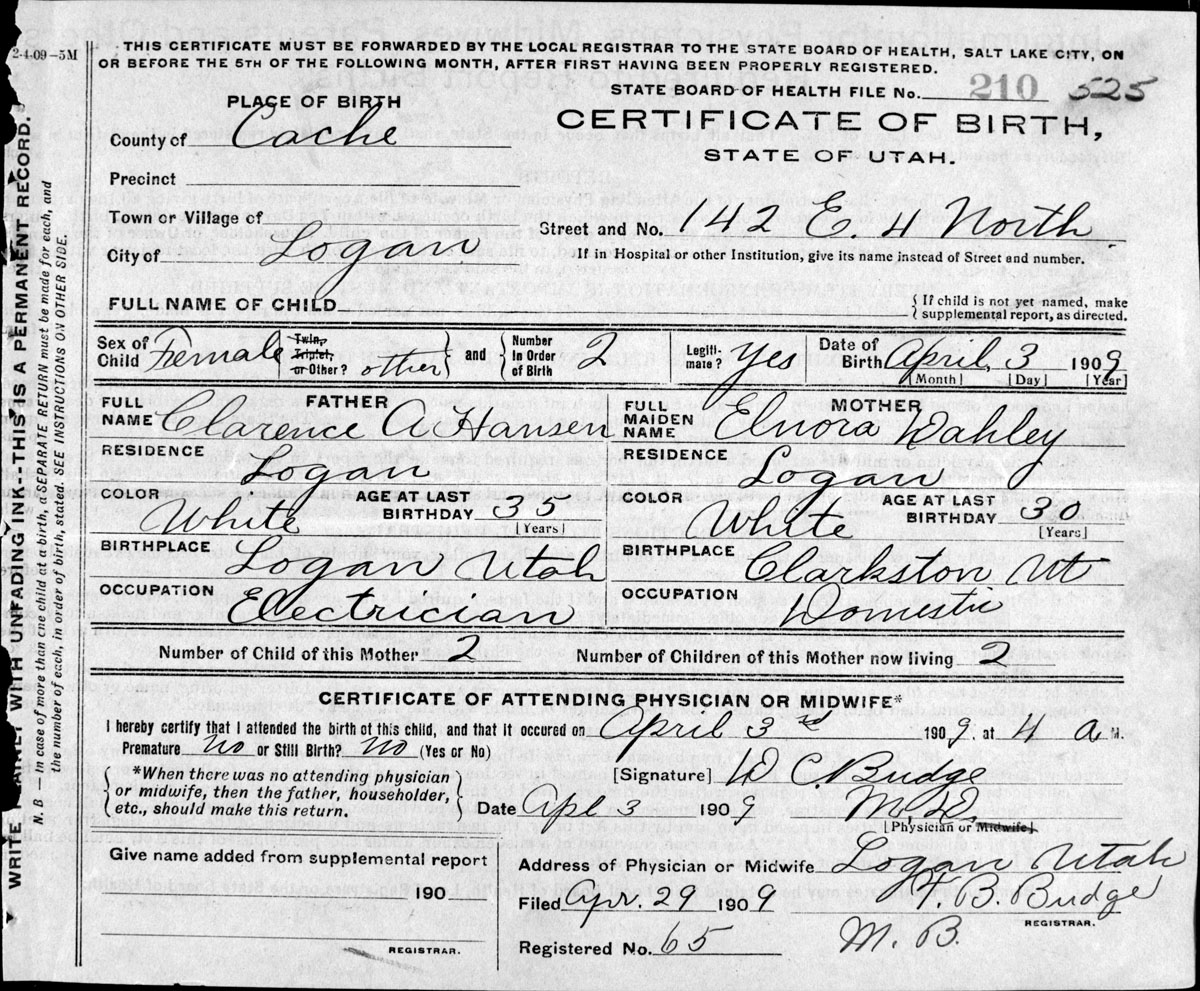 2-4-09-5M
THIS CERTIFICATE MUST BE FORWARDED BY THE LOCAL REGISTRAR TO THE STATE BOARD OF HEALTH, SALT LAKE CITY, ON
OR BEFORE THE 5TH OF THE FOLLOWING MONTH, AFTER FIRST HAVING BEEN PROPERLY REGISTERED.
STATE BOARD OF HEALTH FILE No. 210 525
PLACE OF BIRTH
CERTIFICATE OF BIRTH,
STATE OF UTAH.
County of Cache
Precinct
Town or Village of
City of Logan
Street and No. 142 E. 4 North
If in Hospital or other Institution, give its name instead of Street and number.
FULL NAME OF CHILD
{ If child is not yet named, make supplemental report, as directed.
Sex of Child Female Twin, Triplet, or Other? other and Number In Order of Birth 2 Legitimate? Yes Date of Birth April, 3 1909
[Month] [Day] [Year]
FATHER
FULL NAME Clarence A Hansen
RESIDENCE Logan
COLOR White AGE AT LAST BIRTHDAY 35 [Years]
BIRTHPLACE Logan Utah
OCCUPATION Electrician
MOTHER
FULL MAIDEN NAME Elnora Dahley
RESIDENCE Logan
COLOR White AGE AT LAST BIRTHDAY 30 [Years]
BIRTHPLACE Clarkston Ut
OCCUPATION Domestic
Number of Child of this Mother 2 Number of Children of this Mother now living 2
CERTIFICATE OF ATTENDING PHYSICIAN OR MIDWIFE*
I hereby certify that I attended the birth of this child, and that it occured on April 3rd 1909, at 4 a M.
Premature no or Still Birth? no (Yes or No)
*When there was no attending physician
or midwife, then the father, householder,
etc., should make this return.
[Signature] D C Budge
Date Apl 3 1909 M.D.
[Physician or Midwife]
Give name added from supplemental report
190
REGISTRAR.
Address of Physician or Midwife Logan Utah
Filed Apr. 29 1909 F. B. Budge
REGISTRAR.
Registered No. 65 M. B.
WRITE PLAINLY WITH UNFADING INK--THIS IS A PERMANENT RECORD.
N. B. — In case of more than one child at a birth, a SEPARATE RETURN must be made for each, and
the number of each, in order of birth, stated. SEE INSTRUCTIONS ON OTHER SIDE.